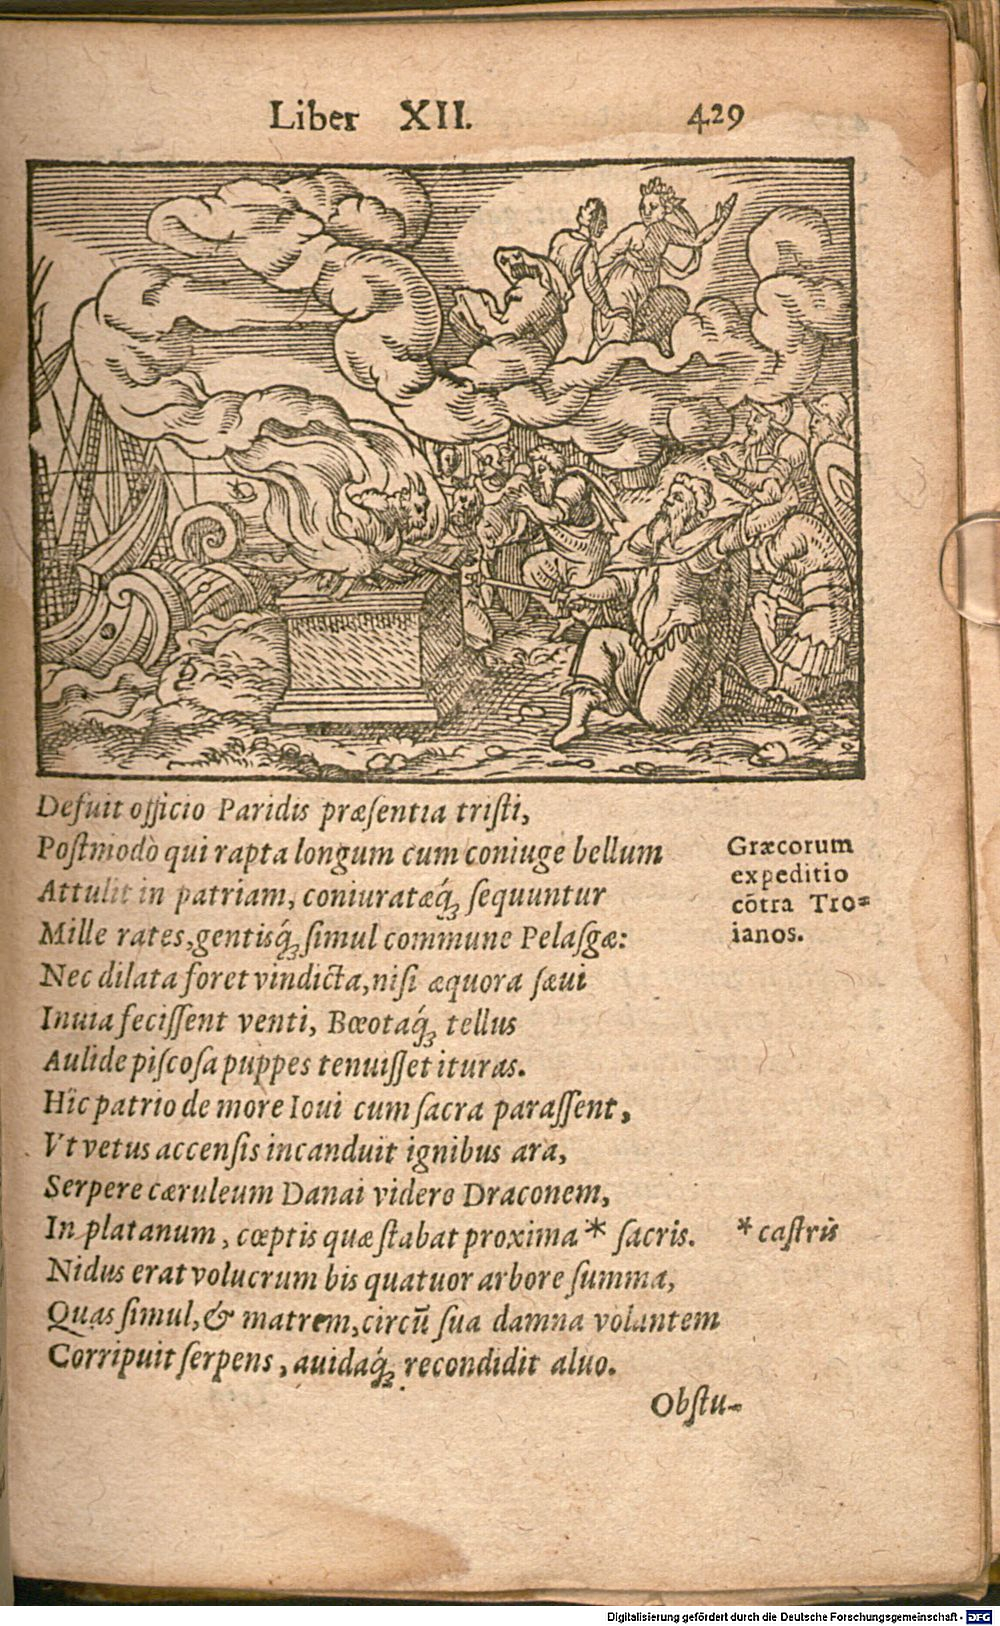 Liber XII. 429
Defuit officio Paridis præſentia triſti,
Poſtmodò qui rapta longum cum coniuge bellum
Attulit in patriam, coniuratæq́ꝫ ſequuntur
Mille rates, gentisq́ꝫ ſimul commune Pelaſgæ:
Græcorum
expeditio
cõtra Tro=
ianos.
Nec dilata foret vindicta, niſi æquora ſæui
Inuia feciſſent venti, Bœotaq́ꝫ tellus
Aulide piſcoſa puppes tenuiſſet ituras.
Hîc patrio de more Ioui cum ſacra paraſſent,
Vt vetus accenſis incanduit ignibus ara,
Serpere cæruleum Danai videre Draconem,
In platanum, cœptis quæ ſtabat proxima * ſacris. * caſtris
Nidus erat volucrum bis quatuor arbore ſumma,
Quas ſimul, & matrem, circũ ſua damna volantem
Corripuit ſerpens, auidaq́ꝫ recondidit aluo.
Obſtu-
Digitalisierung gefördert durch die Deutsche Forschungsgemeinschaft - DFG